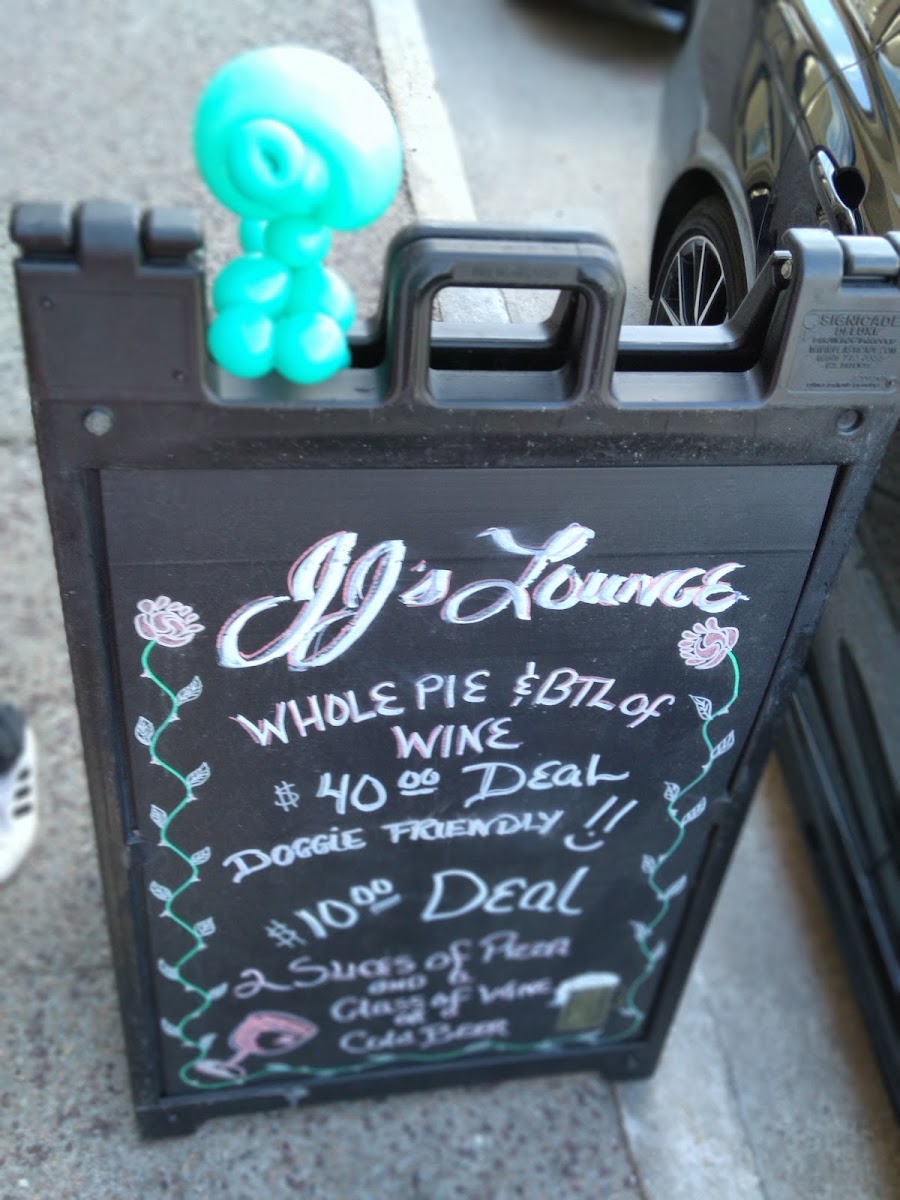 SIGNICADE
DELUXE
JJ's Lounge
WHOLE PIE & BTL of
WINE
$40.00 Deal
Doggie Friendly !!
$10.00 Deal
2 Slices of Pizza
and a
Glass of Wine
or
Cold Beer